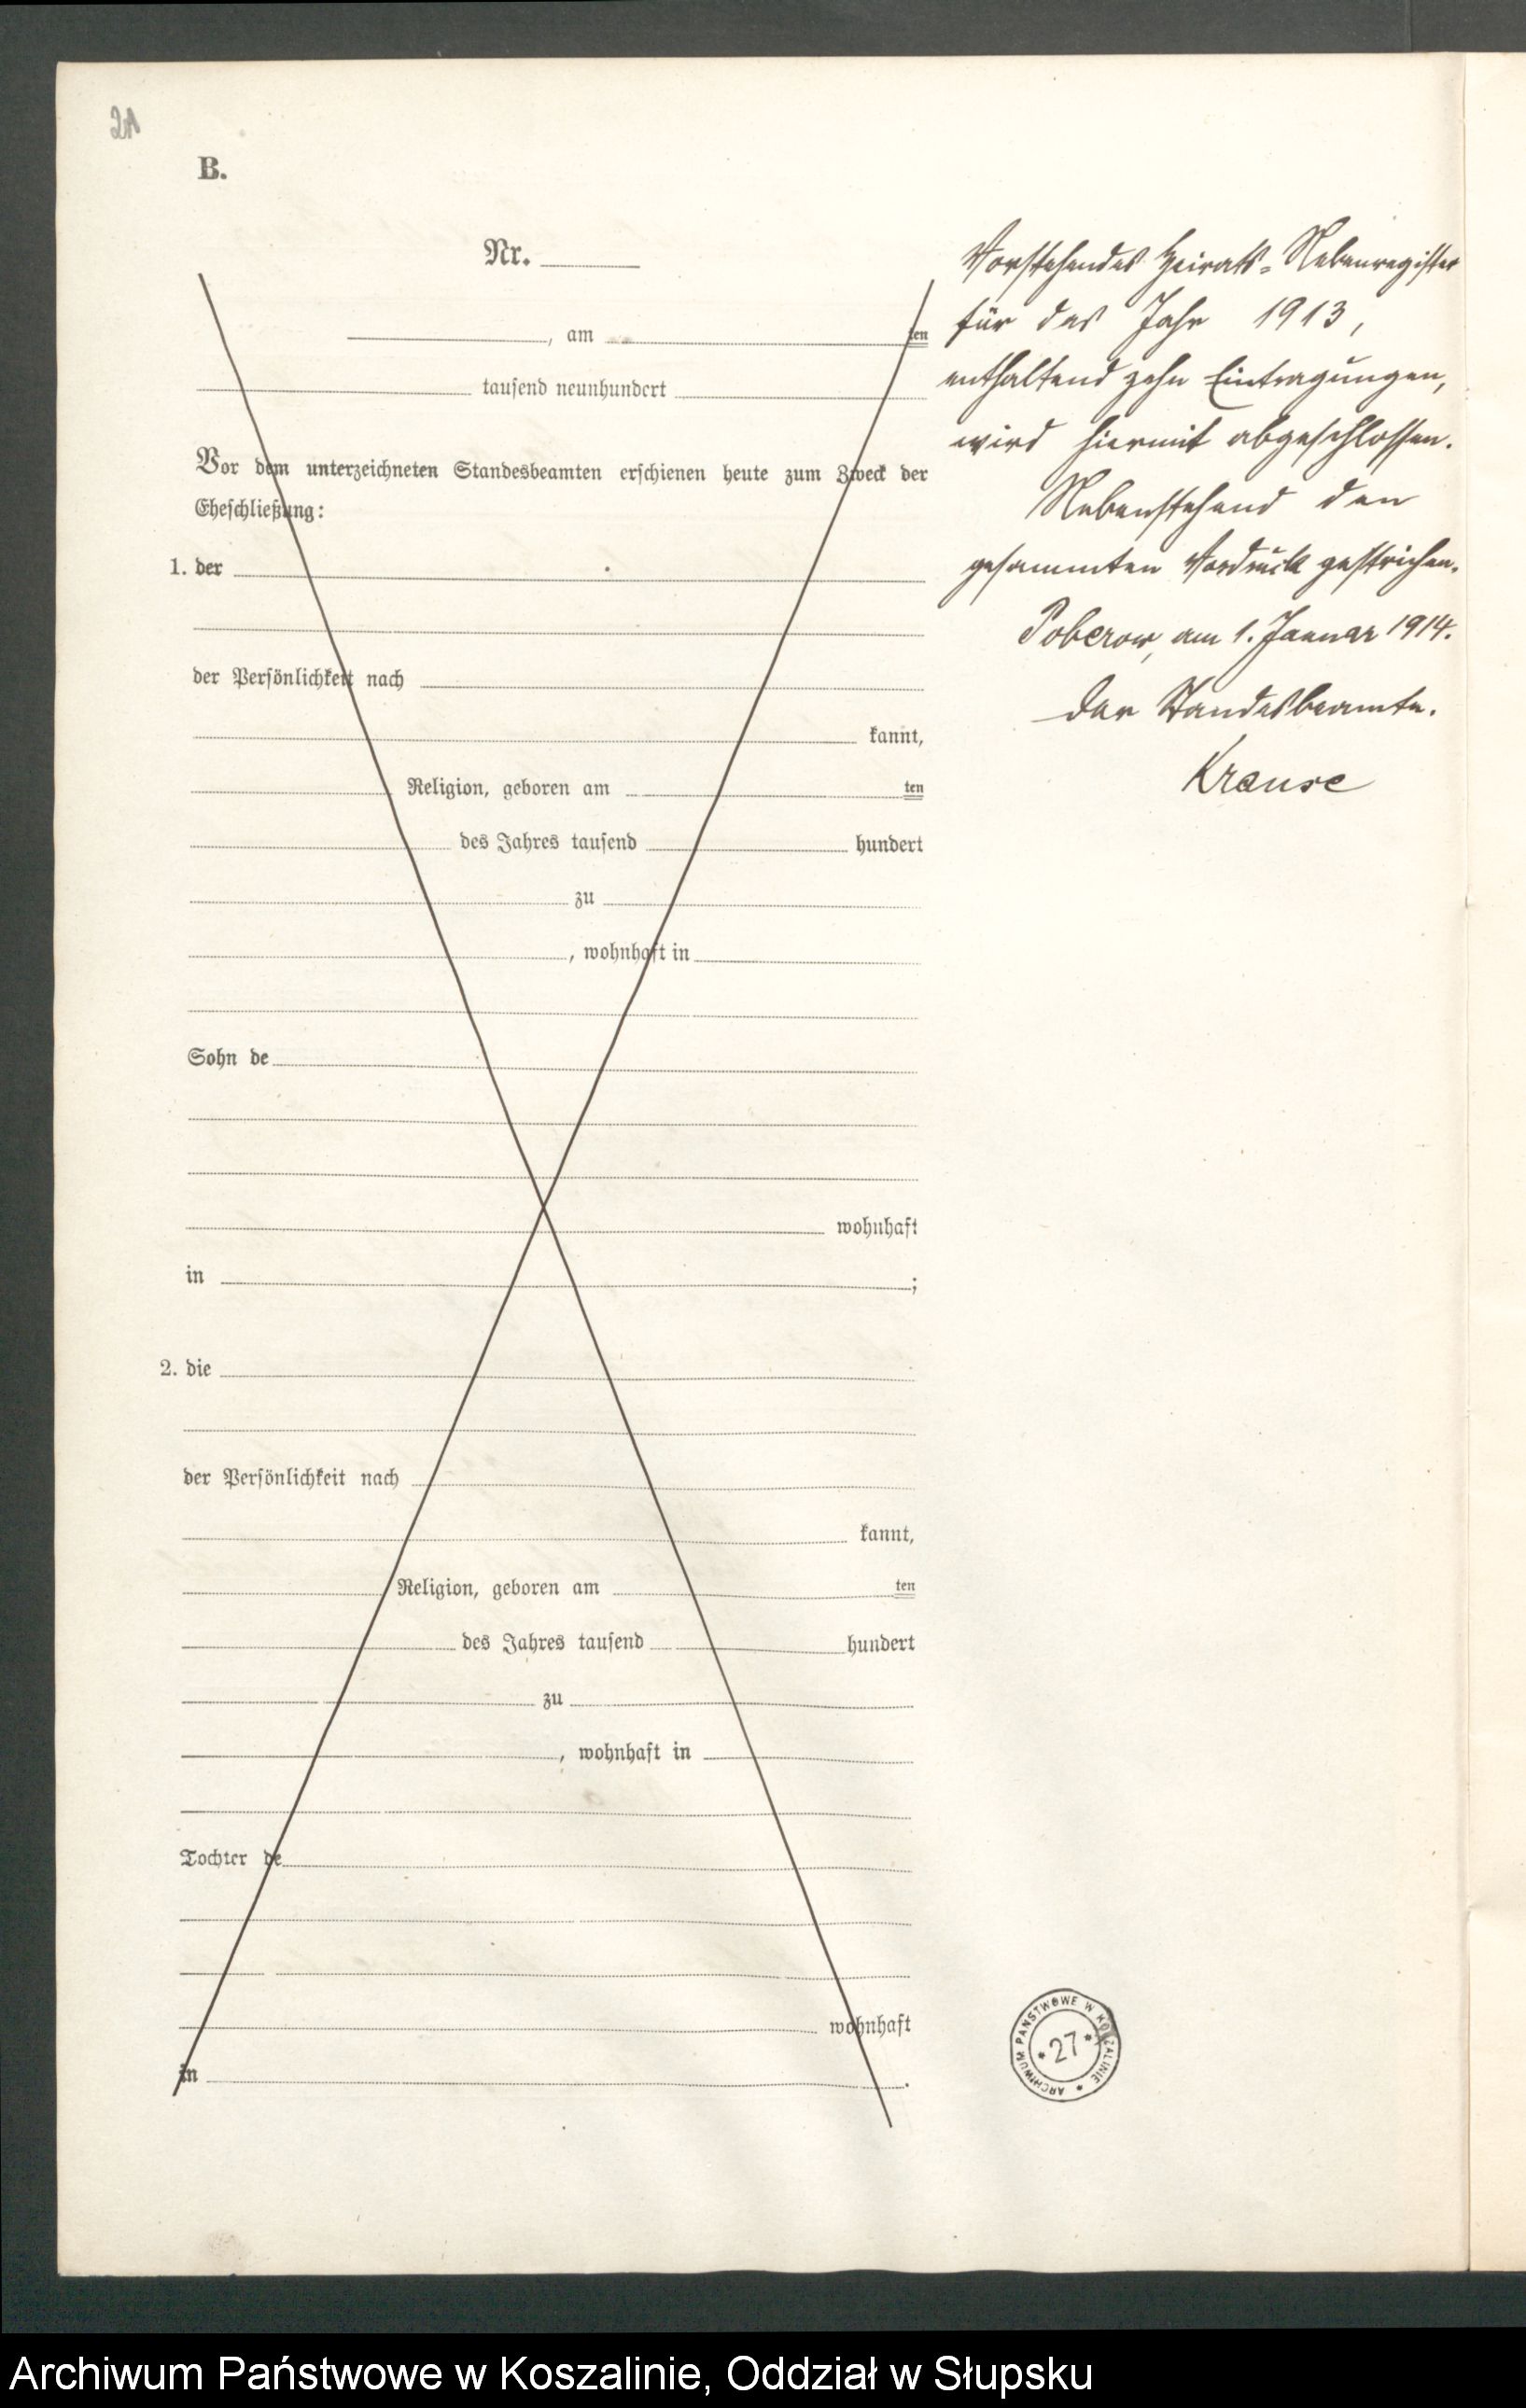 21
B.
Nr.
, am ten
tausend neunhundert
Vor dem unterzeichneten Standesbeamten erschienen heute zum Zweck der
Eheschließung:
1. der
der Persönlichkeit nach
kannt,
Religion, geboren am ten
des Jahres tausend hundert
zu
, wohnhaft in
Sohn de
wohnhaft
in ;
2. die
der Persönlichkeit nach
kannt,
Religion, geboren am ten
des Jahres tausend hundert
zu
, wohnhaft in
Tochter de
wohnhaft
in .
Vorstehendes Heirats-Nebenregister
für das Jahr 1913,
enthaltend zehn Eintragungen,
wird hiermit abgeschlossen.
Nebenstehend den
gesammten Vordruck gestrichen.
Poberow, am 1. Januar 1914.
Der Standesbeamte.
Krause
ARCHIWUM PAŃSTWOWE W KOSZALINIE
* 27 *
Archiwum Państwowe w Koszalinie, Oddział w Słupsku